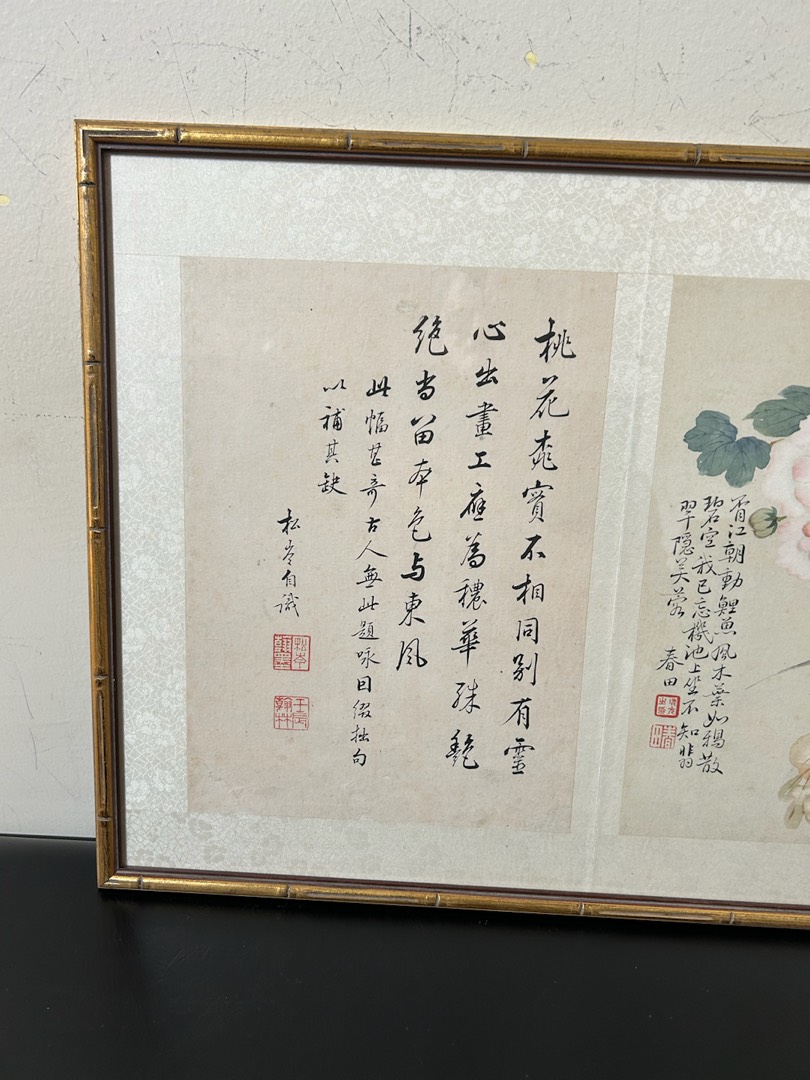 桃花桃實不相同別有靈
心出畫工應為穠華殊艷
絶尚留本色与東風
此幅甚奇古人無此題咏因綴拙句
以補其缺
松岑自識
松岑
壬辰翰林
胥江朝動鯉魚風木葉如鴉散
碧空我已忘機池上坐不知翡
翠隱芙蓉
春田